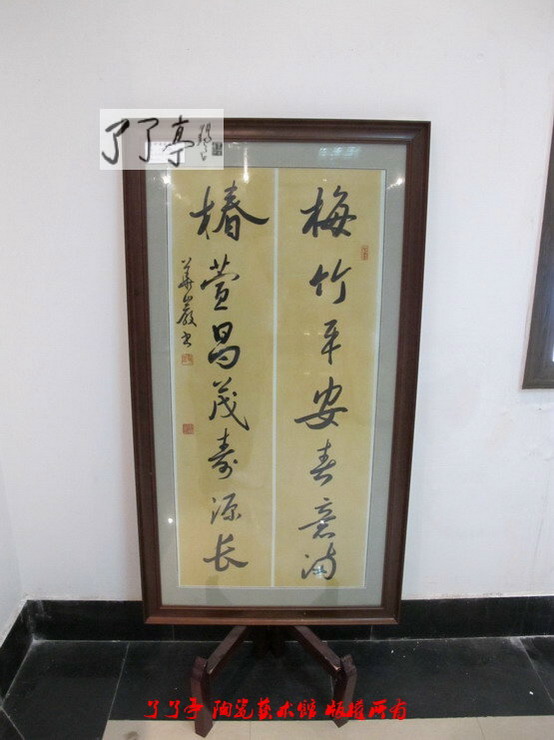 了了亭
梅竹平安春意满
椿萱昌茂寿源长
华岩书
了了亭 陶瓷艺术馆 版权所有